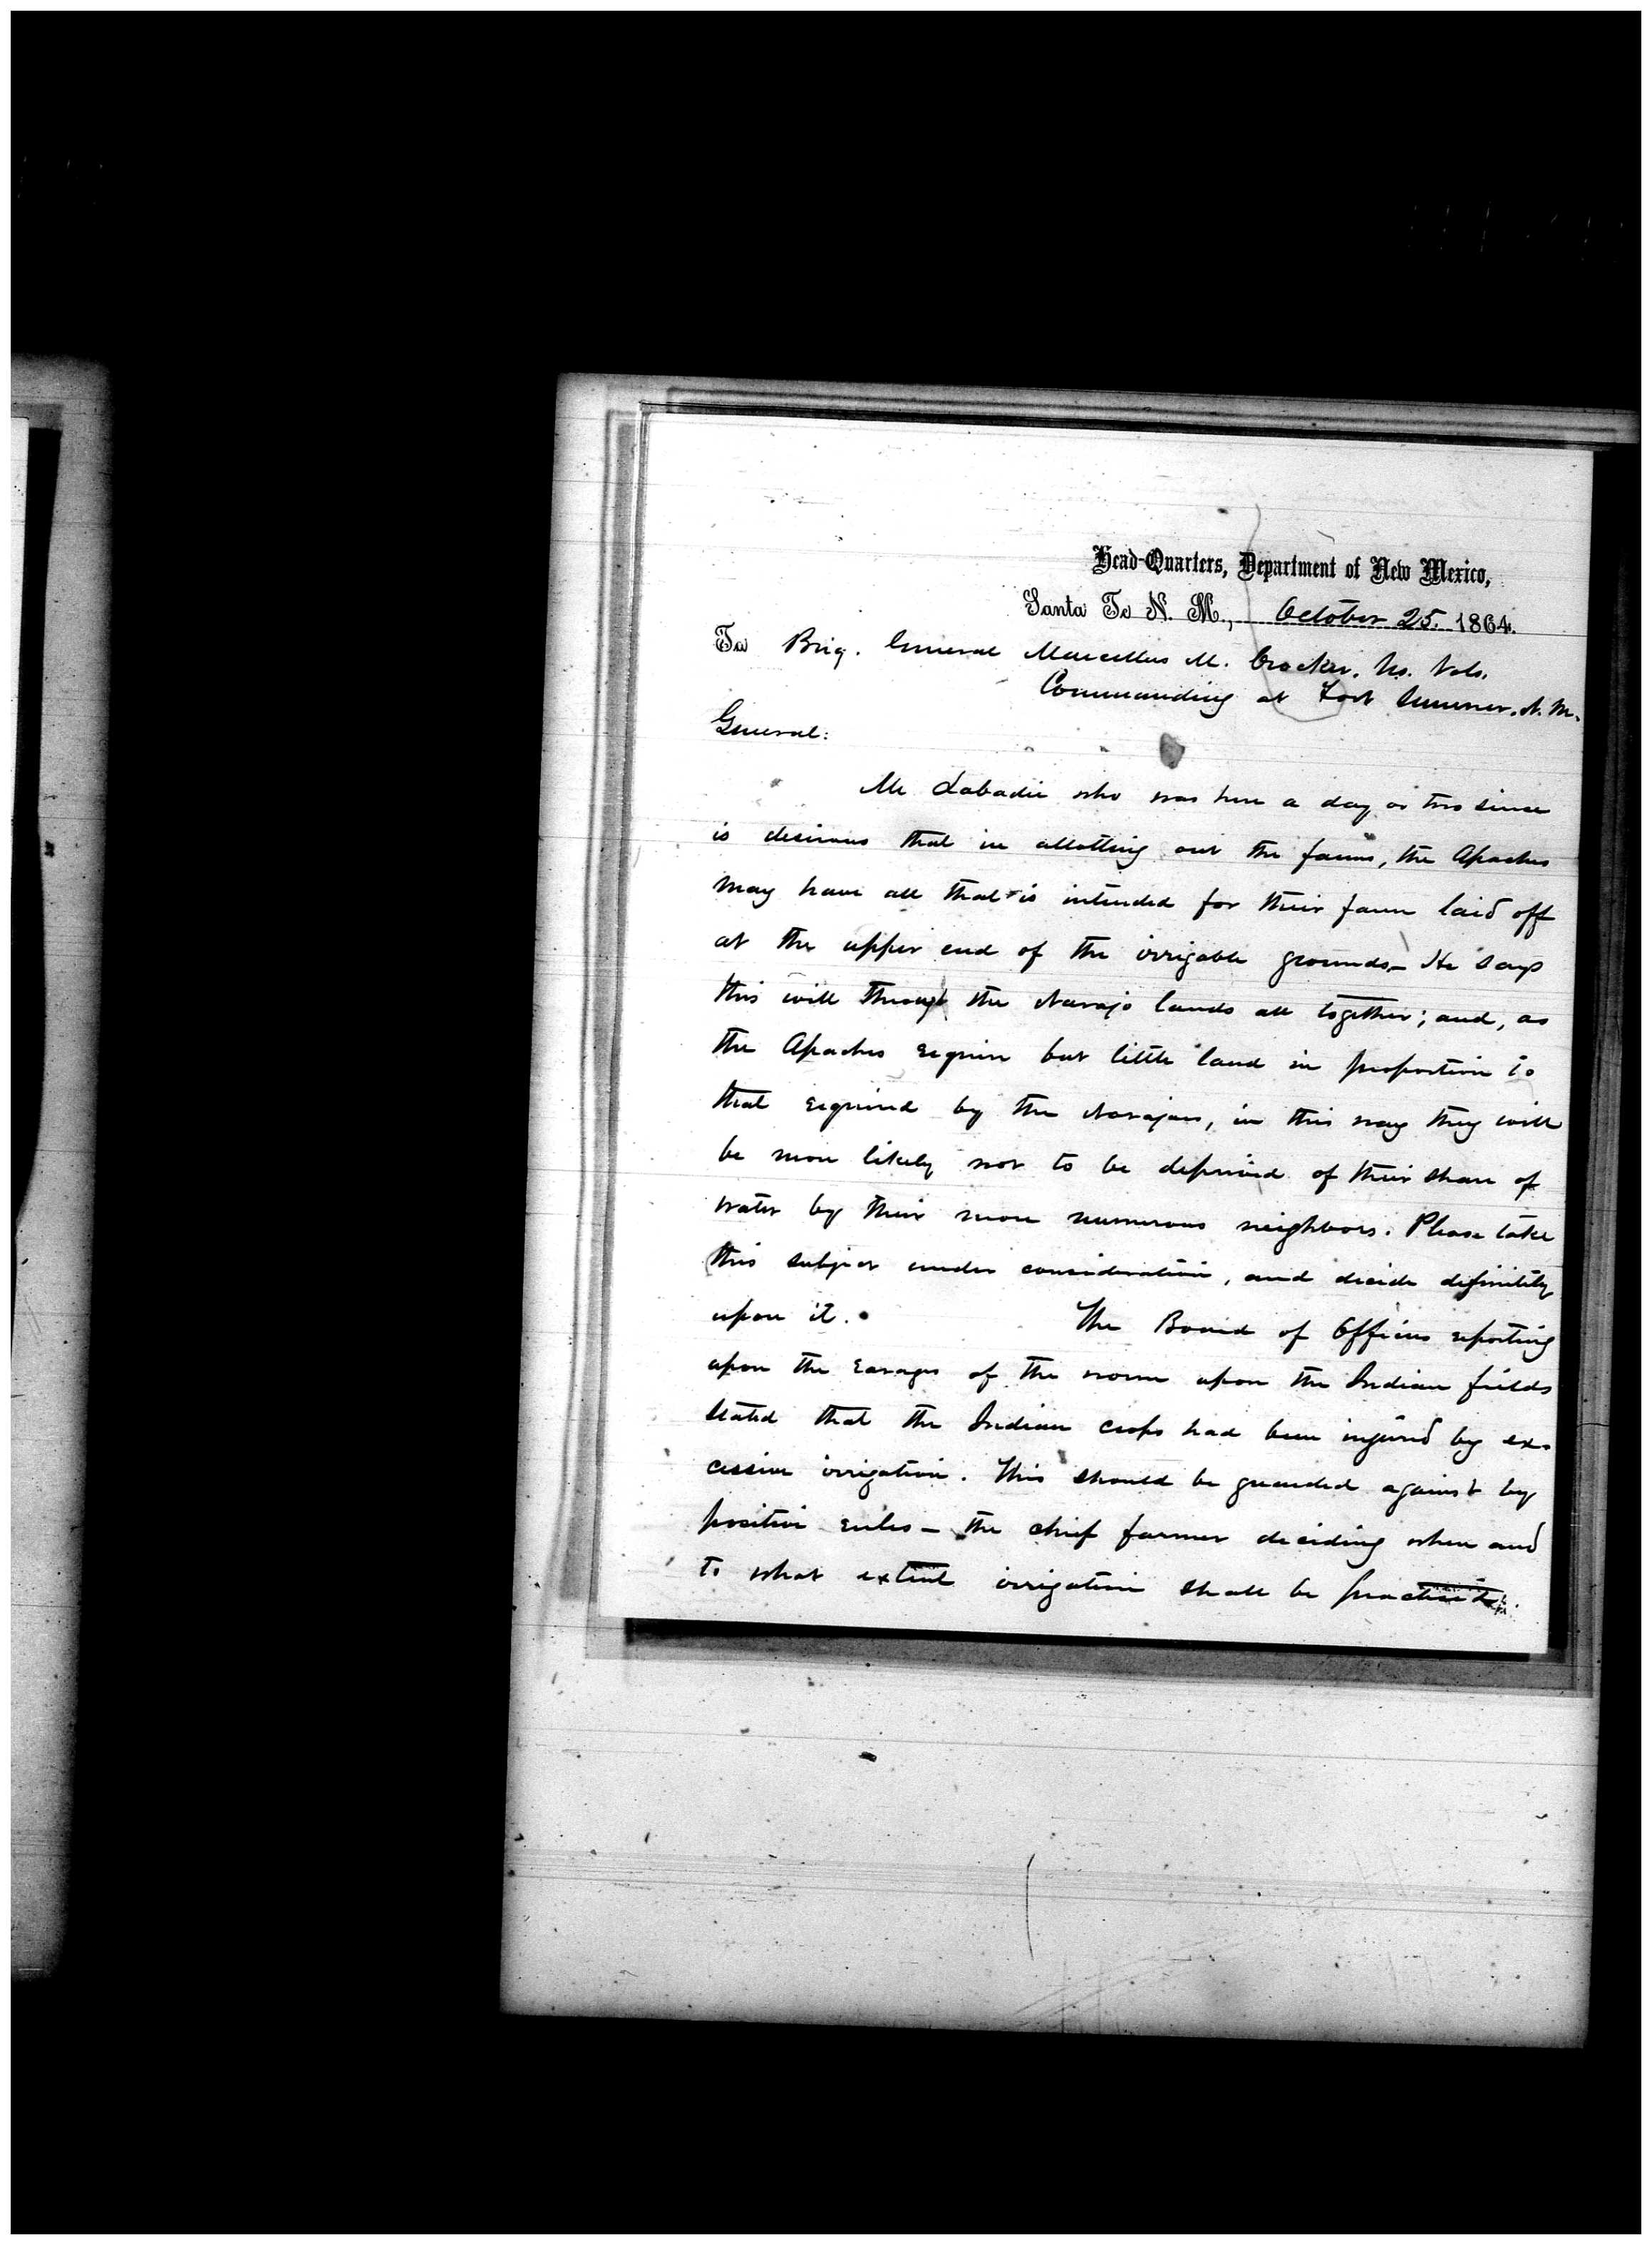 Head-Quarters, Department of New Mexico,
Santa Fe N. M., October 25. 1864.
To Brig. General Marcellus M. Crocker. U.S. Vols.
Commanding at Fort Sumner. N. M.
General:
Mr Labadie who was here a day or two since
is desirous that in allotting out the farms, the Apaches
may have all that is intended for their farm laid off
at the upper end of the irrigable grounds — He says
this will through the Navajo lands all together; and, as
the Apaches require but little land in proportion to
that required by the Navajoes, in this way they will
be more likely not to be deprived of their share of
water by their more numerous neighbors. Please take
this subject under consideration, and decide definitely
upon it. The Board of Officers reporting
upon the ravages of the worm upon the Indian fields
stated that the Indian crops had been injured by ex-
cessive irrigation. This should be guarded against by
positive rules — the chief farmer deciding when and
to what extent irrigation shall be practised.